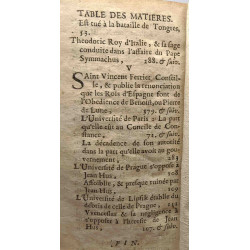 TABLE DES MATIERES.
Est tué à la bataille de Tongres,
53.
Theodoric Roy d'Italie, & sa sage
conduite dans l'affaire du Pape
Symmachus, 188. & suiv.
V
SAint Vincent Ferrier Conseille,
& publie la renonciation
que les Rois d'Espagne font de
l'Obedience de Benoist, ou Pierre
de Lune, & suiv.
L'Université de Paris: La part
qu'elle eut au Concile de Constance,
72. & suiv.
La décadence de son
dans la part qu'elle avoit eu
L'Université de Prague s'oppose à
Jean Hus,
Affoiblie, & presque ruinée par
Jean Hus,
L'Université de Lipsik établie du
débris de celle de Prague,
Venceslas & sa negligence à
s'opposer à l'heresie de Jean
Hus, & suiv.
FIN.